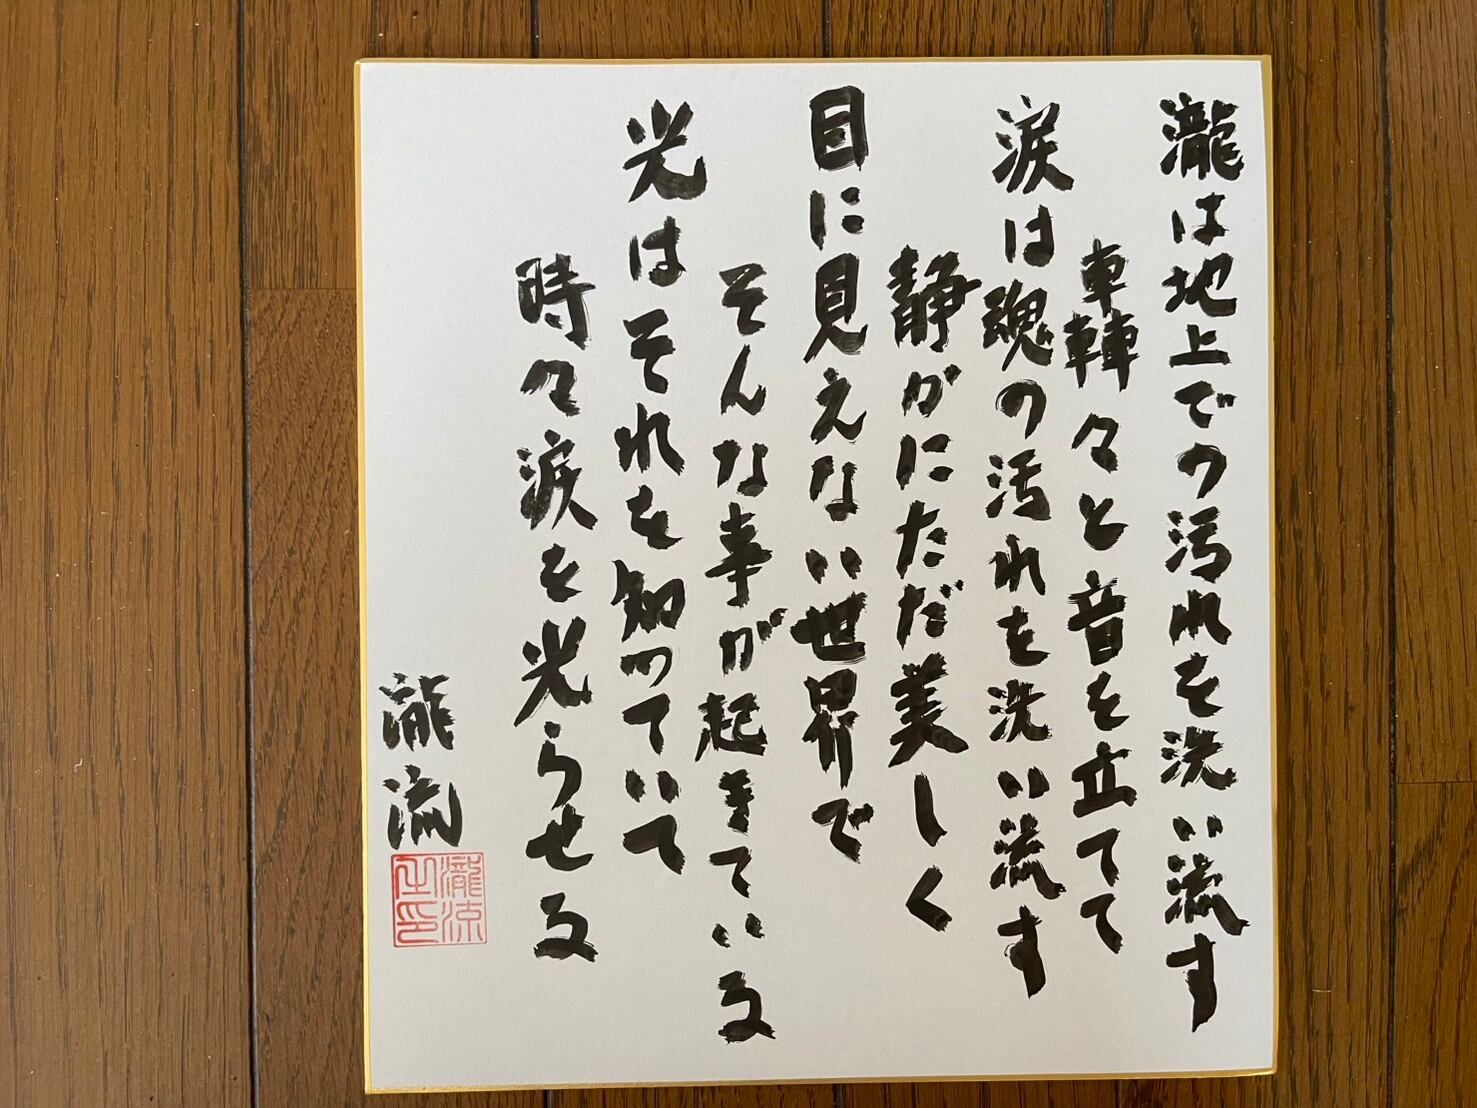 瀧は地上での汚れを洗い流す
轟々と音を立てて
涙は魂の汚れを洗い流す
静かにただ美しく
目に見えない世界で
そんな事が起きている
光はそれを知っていて
時々涙を光らせる
瀧流
瀧涼
之印